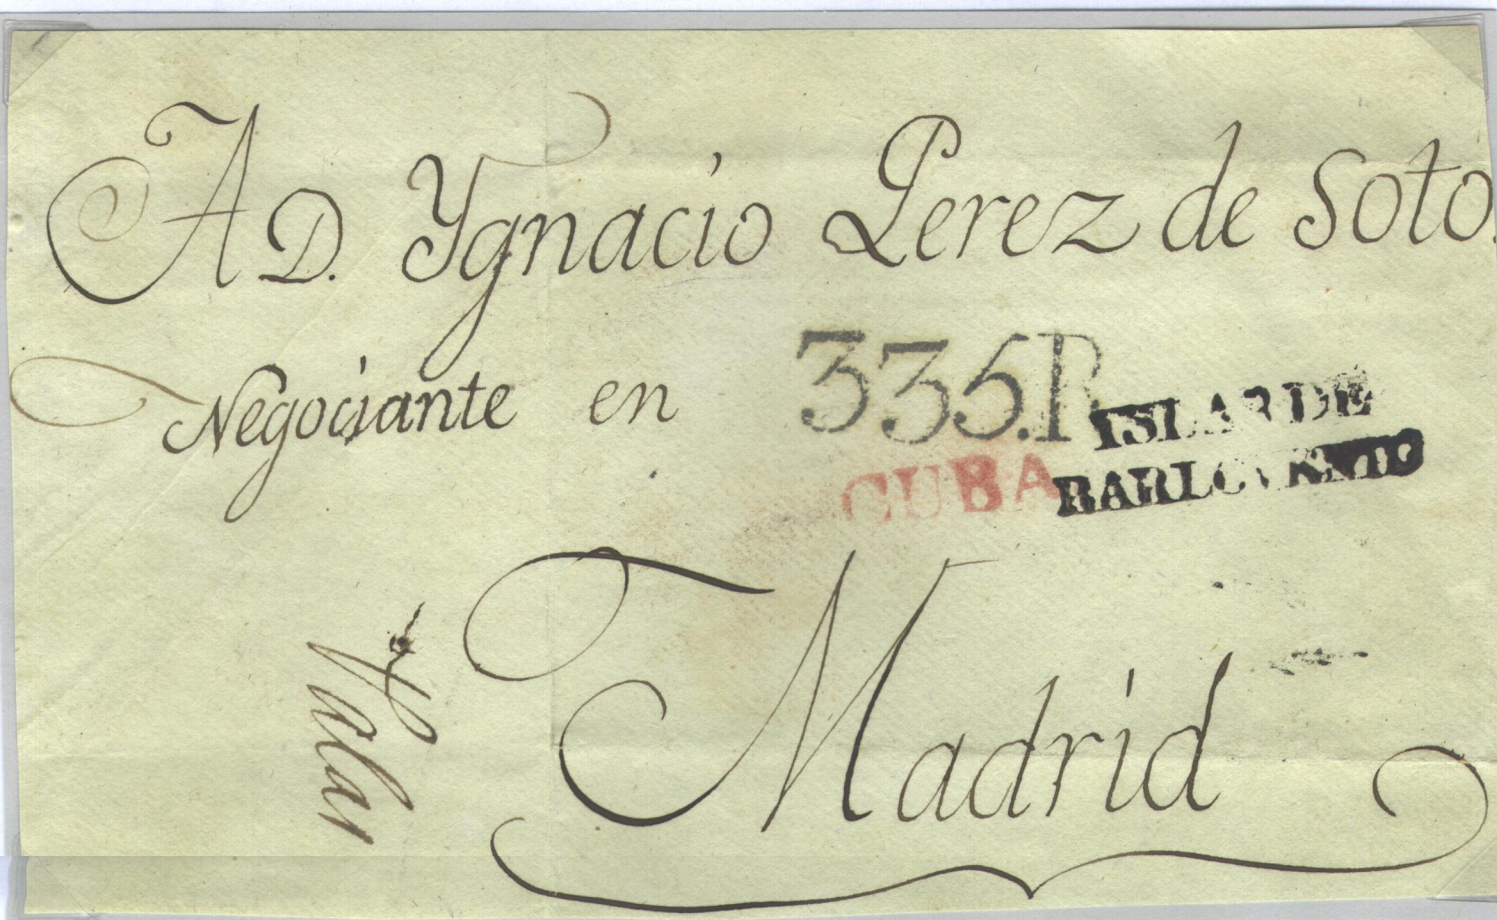 A D. Ygnacio Perez de Soto.
Negociante en
335.R
YSLAS DE
BARLOVENTO
CUBA
Madrid